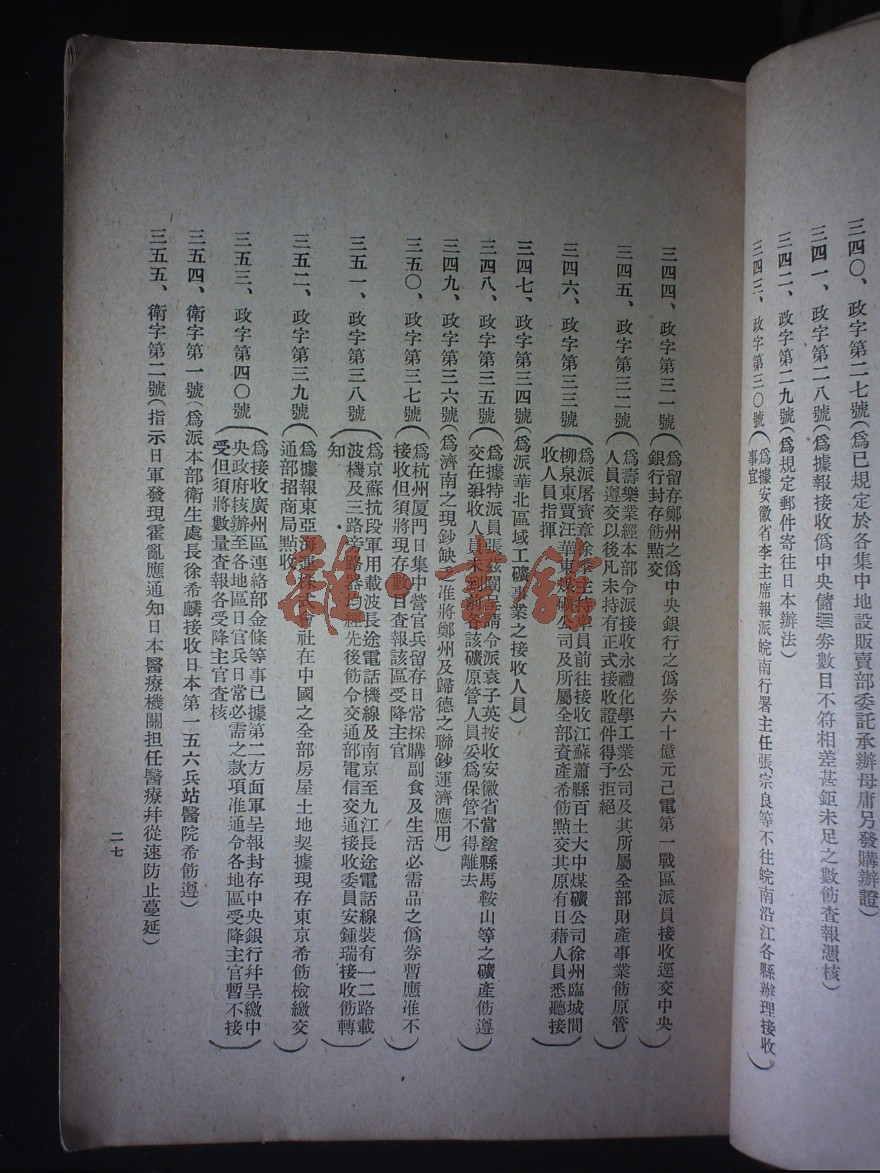 三四〇、政字第二七號(爲已規定於各集中地設販賣部委託承辦毋庸另發購辦證)
三四一、政字第二八號(爲據報接收僞中央儲備券數目不符相差甚鉅未足之數飭查報憑核)
三四二、政字第二九號(爲規定郵件寄往日本辦法)
三四三、政字第三〇號(爲據安徽省李主席報派皖南行署主任張宗良等不往皖南沿江各縣辦理接收
事宜)
三四四、政字第三一號(爲留存鄭州之僞中央銀行之僞券六十億元己電第一戰區派員接收逕交中央
銀行封存飭點交)
三四五、政字第三二號(爲壽樂業經本部令派接收永禮化學工業公司及其所屬全部財產事業飭原管
人員遵交以後凡未持有正式接收證件得予拒絕)
三四六、政字第三三號(爲派屠寳章徐 主持率員前往接收江蘇蕭縣百土大中煤礦公司徐州臨城間
柳泉東賈汪華東煤礦公司及所屬全部資產希飭點交其原有日藉人員悉聽接
收人員指揮)
三四七、政字第三四號(爲派華北區域工礦事業之接收人員)
三四八、政字第三五號(爲據特派員張 呈請令派袁子英按收安徽省當塗縣馬鞍山等之礦產飭遵
交在 收人員未到前各該礦原管人員妥爲保管不得離去)
三四九、政字第三六號(爲濟南之現鈔缺乏准將鄭州及歸德之聯鈔運濟應用)
三五〇、政字第三七號(爲杭州厦門日集中營官兵留存日常採購副食及生活必需品之僞券暫應准不
接收但須將現存數目查報該區受降主官)
三五一、政字第三八號(爲京蘇抗段軍用載波長途電話機線及南京至九江長途電話線裝有一二路載
波機及三路旁路器均經先後飭令交通部電信交通接收委員安鍾瑞接收飭轉
知)
三五二、政字第三九號(爲據報東亞海運株式會社在中國之全部房屋土地契據現存東京希飭檢繳交
通部招商局點收)
三五三、政字第四〇號(爲接收廣州區連絡部金條等事已據第二方面軍呈報封存中央銀行幷呈繳中
央政府核辦至各地區日官兵日常必需之款項准通令各地區受降主官暫不接
受但須將數量查報各受降主官查核)
三五四、衛字第一號(爲派本部衛生處長徐希麟接收日本第一五六兵站醫院希飭遵)
三五五、衛字第二號(指示日軍發現霍亂應通知日本醫療機關担任醫療幷從速防止蔓延)
二七
雜·書館